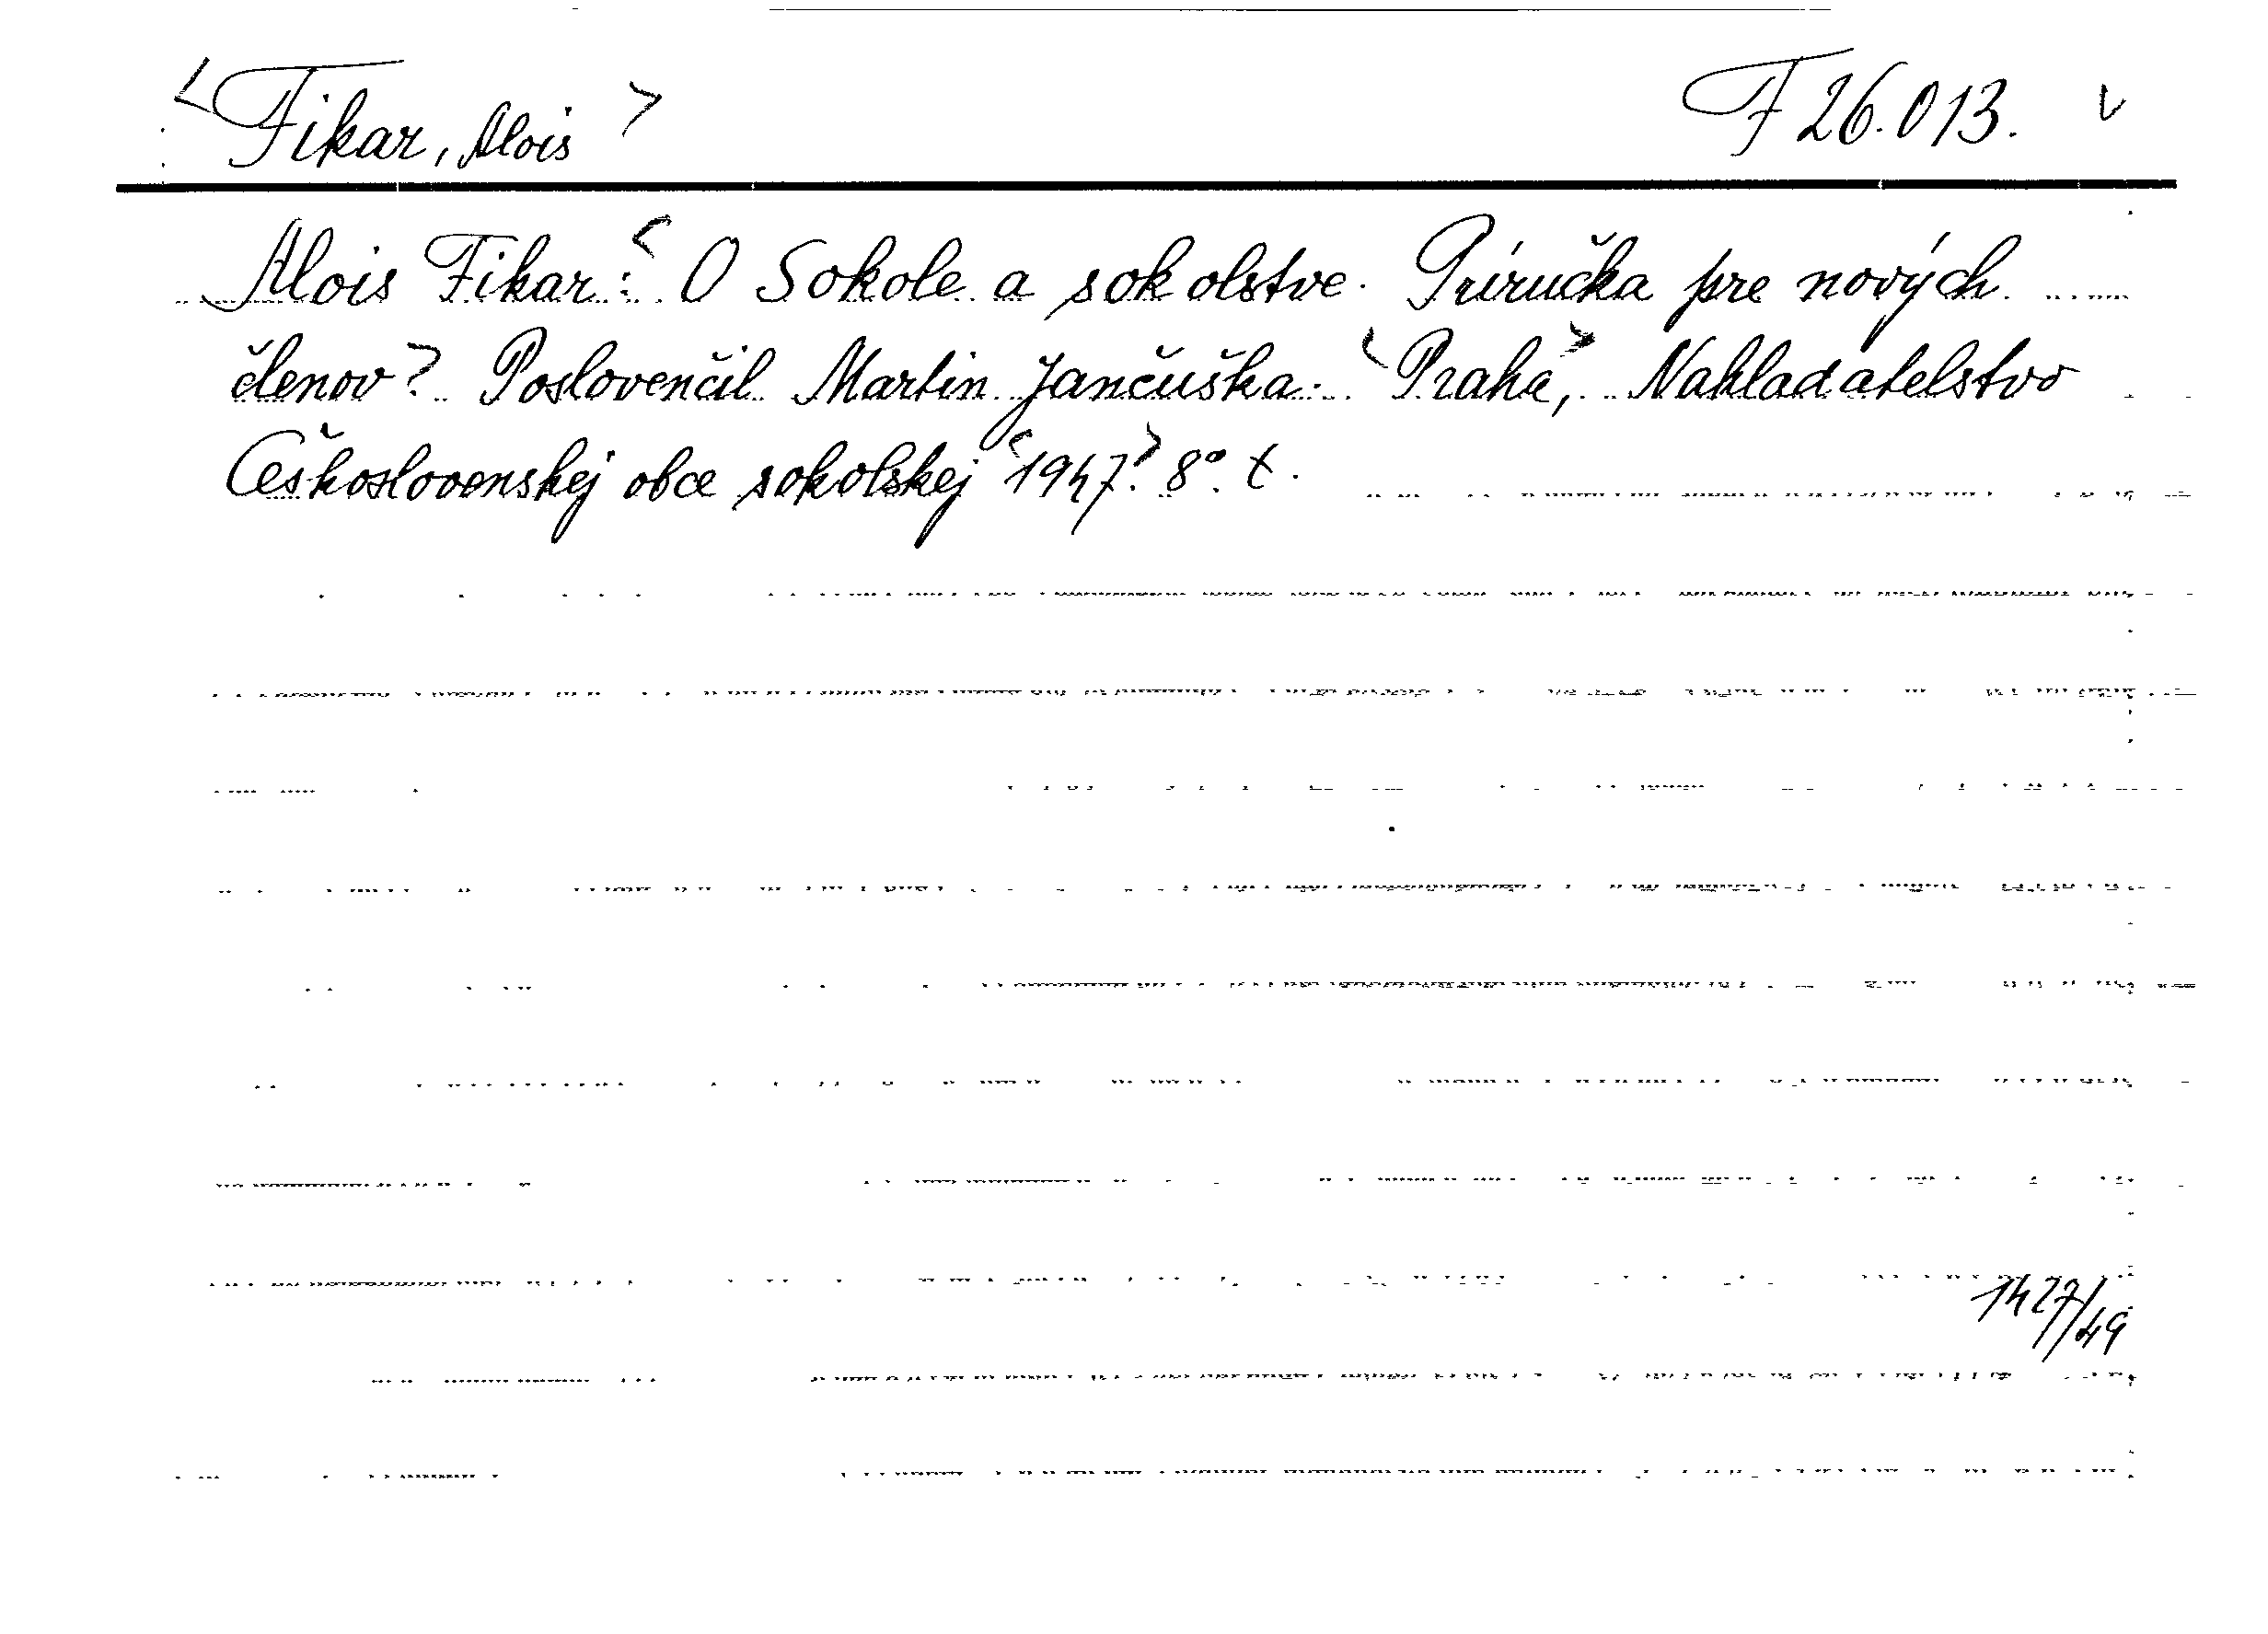 <Fikar, Alois> F 26.013. v
Alois Fikar: <O Sokole a sokolstve. Príručka pre nových
členov>. Poslovenčil Martin Jančuška. <Praha>, Nakladatelstvo
Československej obce sokolskej <1947>. 8°. t.
1427/49